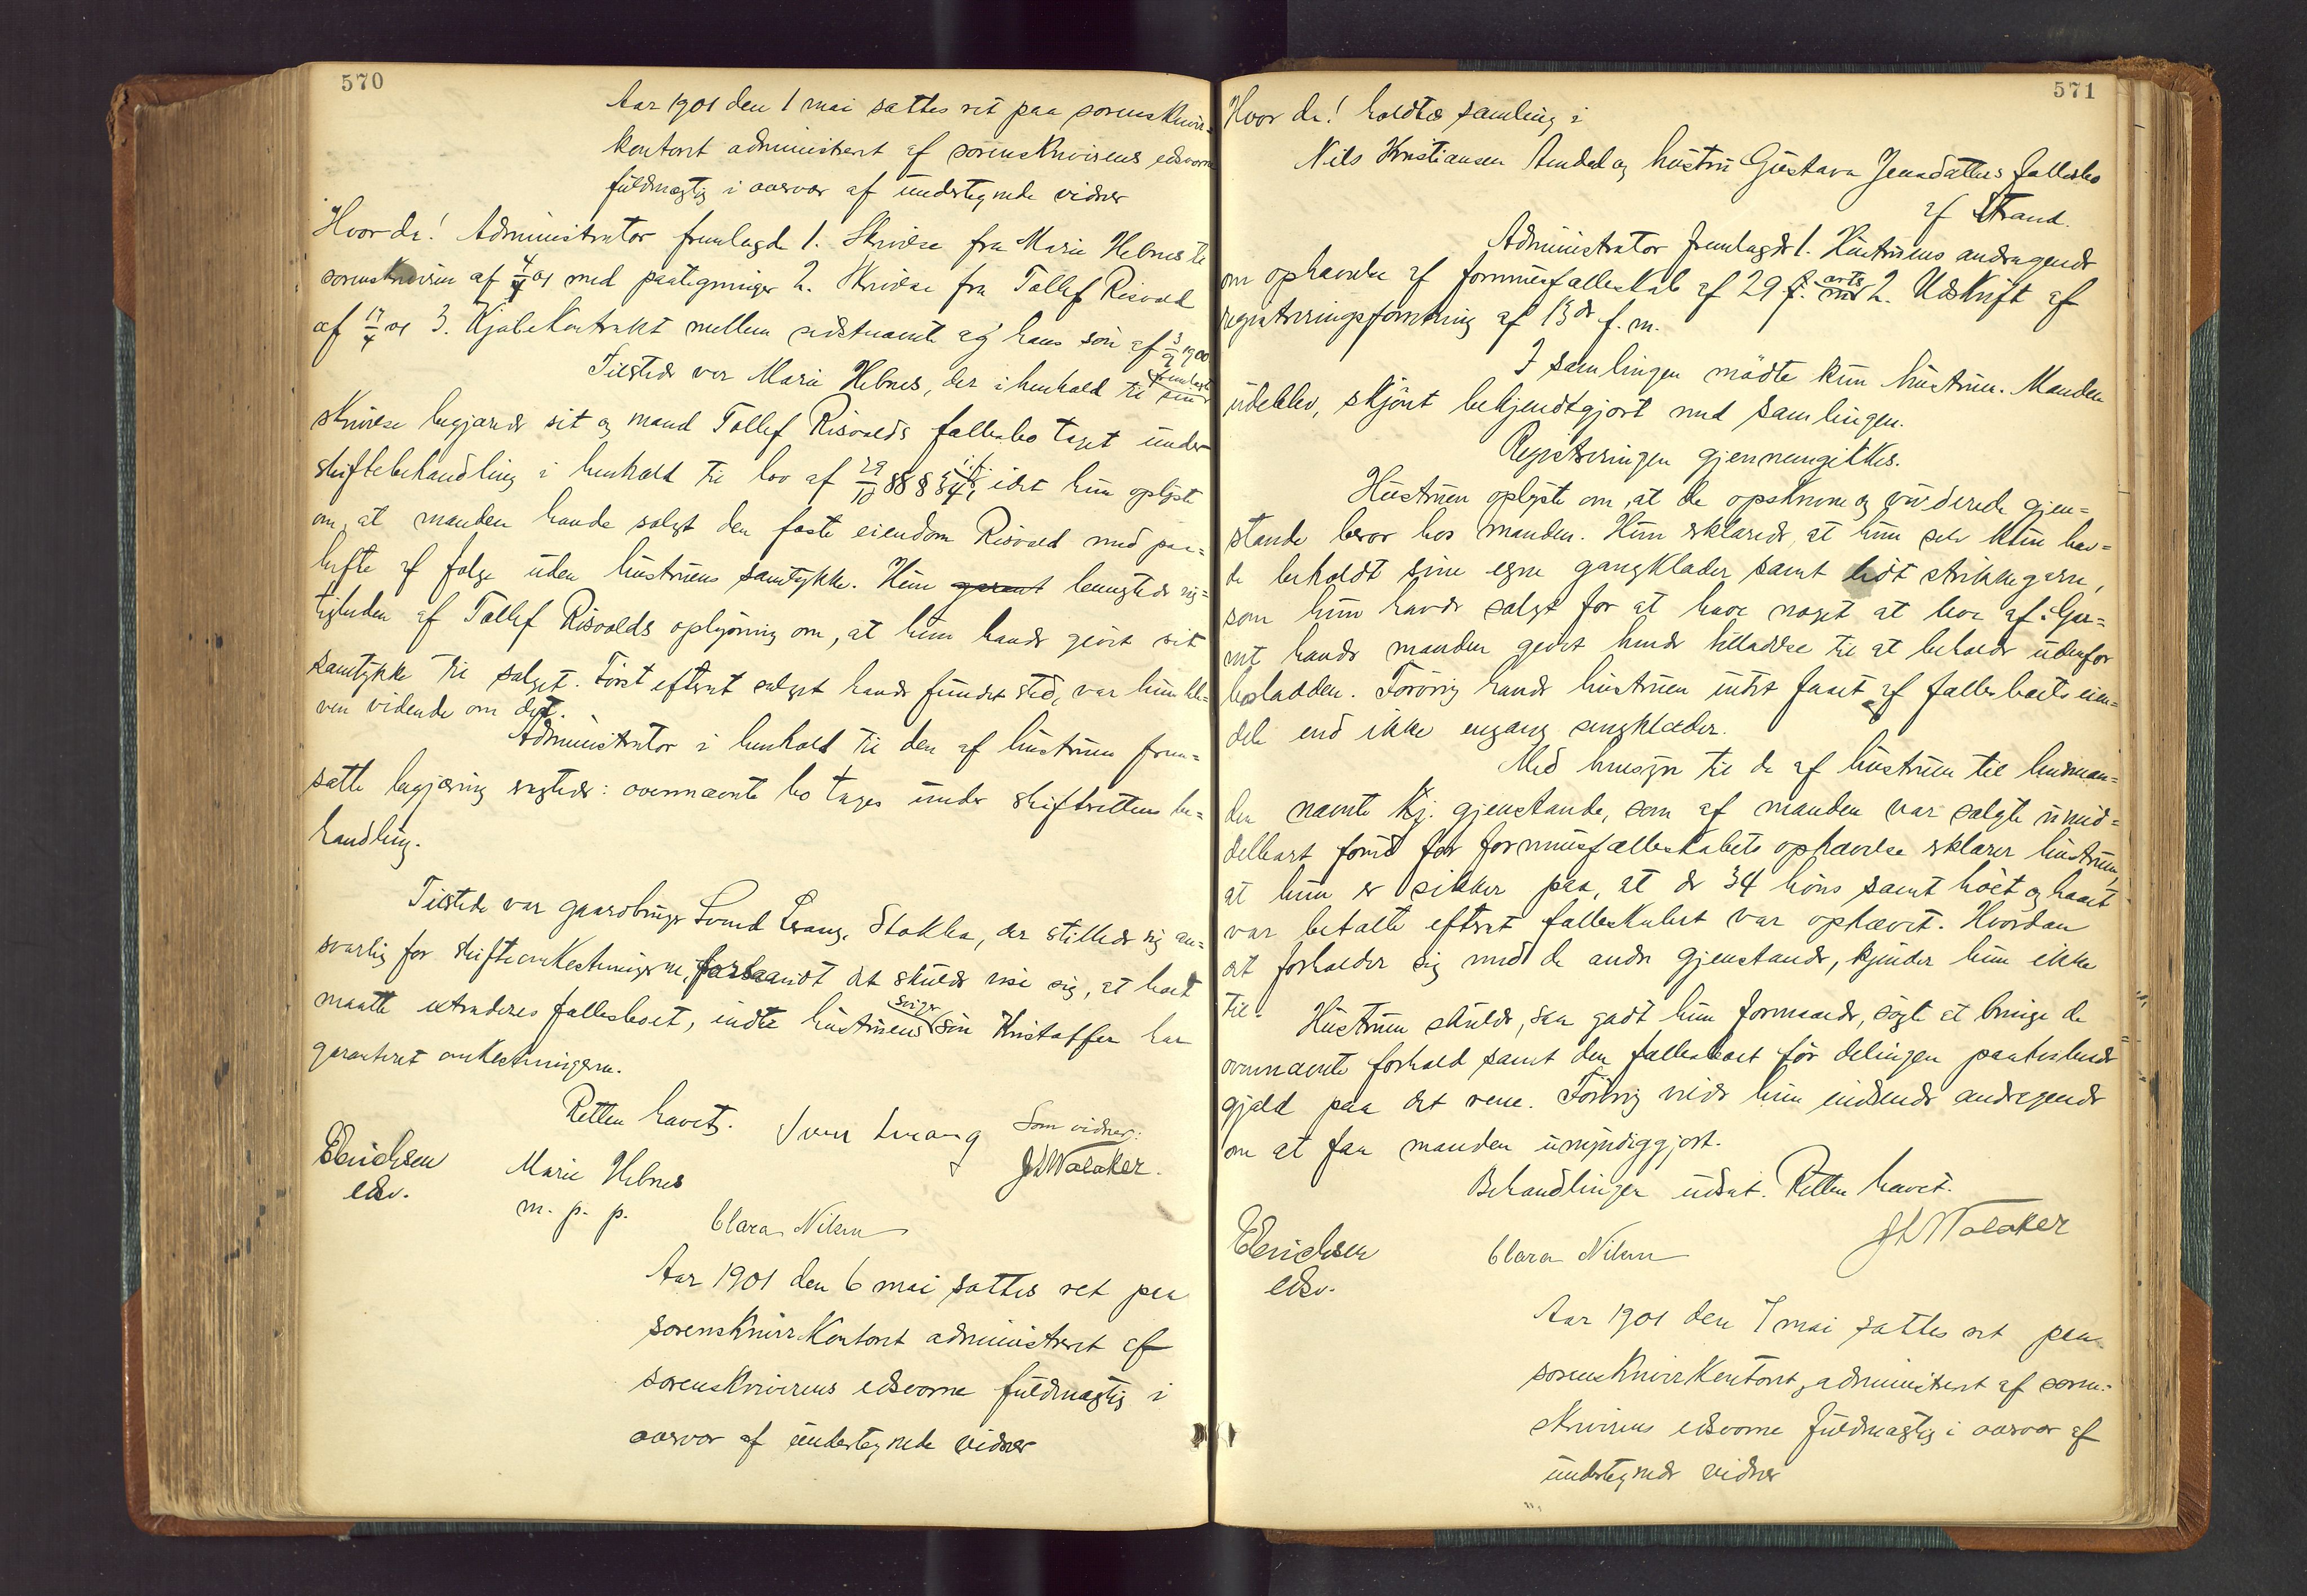 570
Aar 1901 den 1 mai sattes ret paa sorenskriver=
kontoret administreret af sorenskriverens edsvorne
fuldmægtig i overvær af undertegnede vidner
Hvorda! Administrator fremlagde 1. Skrivelse fra Marie Helmes til
sorenskriveren af 4/4 01 med paategninger 2. Skrivelse fra Tollef Risvold
af 17/4 01 3. Kjøbekontrakt mellem sidstnævnte og hans søn af 3/9 1900
Tilstede var Marie Helmes, der i henhold til fremlagte
skrivelse begjærede sit og mand Tollef Risvolds fællesbo taget under
skiftebehandling i henhold til lov af 29/10 88 § 34, idet hun oplyste
om, at manden havde solgt den faste eiendom Risvold med paa=
hefte af folge uden hustruens samtykke. Hun benegtede rig=
tigheden af Tollef Risvolds oplysning om, at hun havde givet sit
samtykke til salget. Først efterat salget havde fundet sted, var hun ble=
ven vidende om det.
Administrator i henhold til den af hustruen frem=
satte begjæring eragtede: ovennævnte bo tages under skifterettens be=
handling.
Tilstede var gaardbruger Svend Tvang, Stokka, der stillede sig an=
svarlig for skifteomkostningerne, forsaavidt det skulde vise sig, at boet
maatte extraderes fællesboet, indtil hustruens sviger søn Kristoffer har
garanteret omkostningerne.
Retten hævet. Sven Tvang Som vidner:
EErichsen Marie Helmes JLWalaker.
edsv. m. p. p. Clara Nilsen
Aar 1901 den 6 mai sattes ret paa
sorenskriverkontoret administreret af
sorenskriverens edsvorne fuldmægtig i
overvær af undertegnede vidner
571
Hvor da! holdtes samling i
Nils Kristiansen Amdal og hustru Gustava Jensdatters fællesbo
af Strand.
Administrator fremlagde 1. Hustruens andragende
om ophævelse af formuesfælleskab af 29. f. arts 2. Udskrift af
registreringsforretning af 13de f. m.
I samlingen mødte kun hustruen. Manden
udeblev, skjønt bekjendtgjort med samlingen.
Registreringen gjennemgikkes.
Hustruen oplyste om, at de opskrevne og vurderede gjen=
stande beror hos manden. Hun erklærede, at hun selv kun hav=
de beholdt sine egne gangklæder samt lidt strikkegarn,
som hun havde solgt for at have noget at leve af. Gar=
net havde manden givet hende tilladelse til at beholde udenfor
bosladden. Forøvrig havde hustruen intet faaet af fællesboets eien=
dele end ikke engang sengklæder.
Med hensyn til de af hustruen til lensman=
den nævnte kj. gjenstande, som af manden var solgte umid=
delbart forud for formuesfælleskabets ophævelse erklærer hustruen,
at hun er sikker paa, at de 34 høns samt høet og haaet
var betalte efterat fælleskabet var ophævet. Hvordan
det forholder sig med de andre gjenstande, kjender hun ikke
til.
Hustruen skulde, saa godt hun formaaede, søge at bringe de
ovennævnte forhold samt den fællesboet før delingen paahvilende
gjæld paa det rene. Forøvrig vilde hun indsende andragende
om at faa manden umyndiggjort.
Behandlingen udsat. Retten hævet.
EErichsen Clara Nilsen JLWalaker
edsv.
Aar 1901 den 7 mai sattes ret paa
sorenskriverkontoret, administreret af soren=
skriverens edsvorne fuldmægtig i overvær af
undertegnede vidner